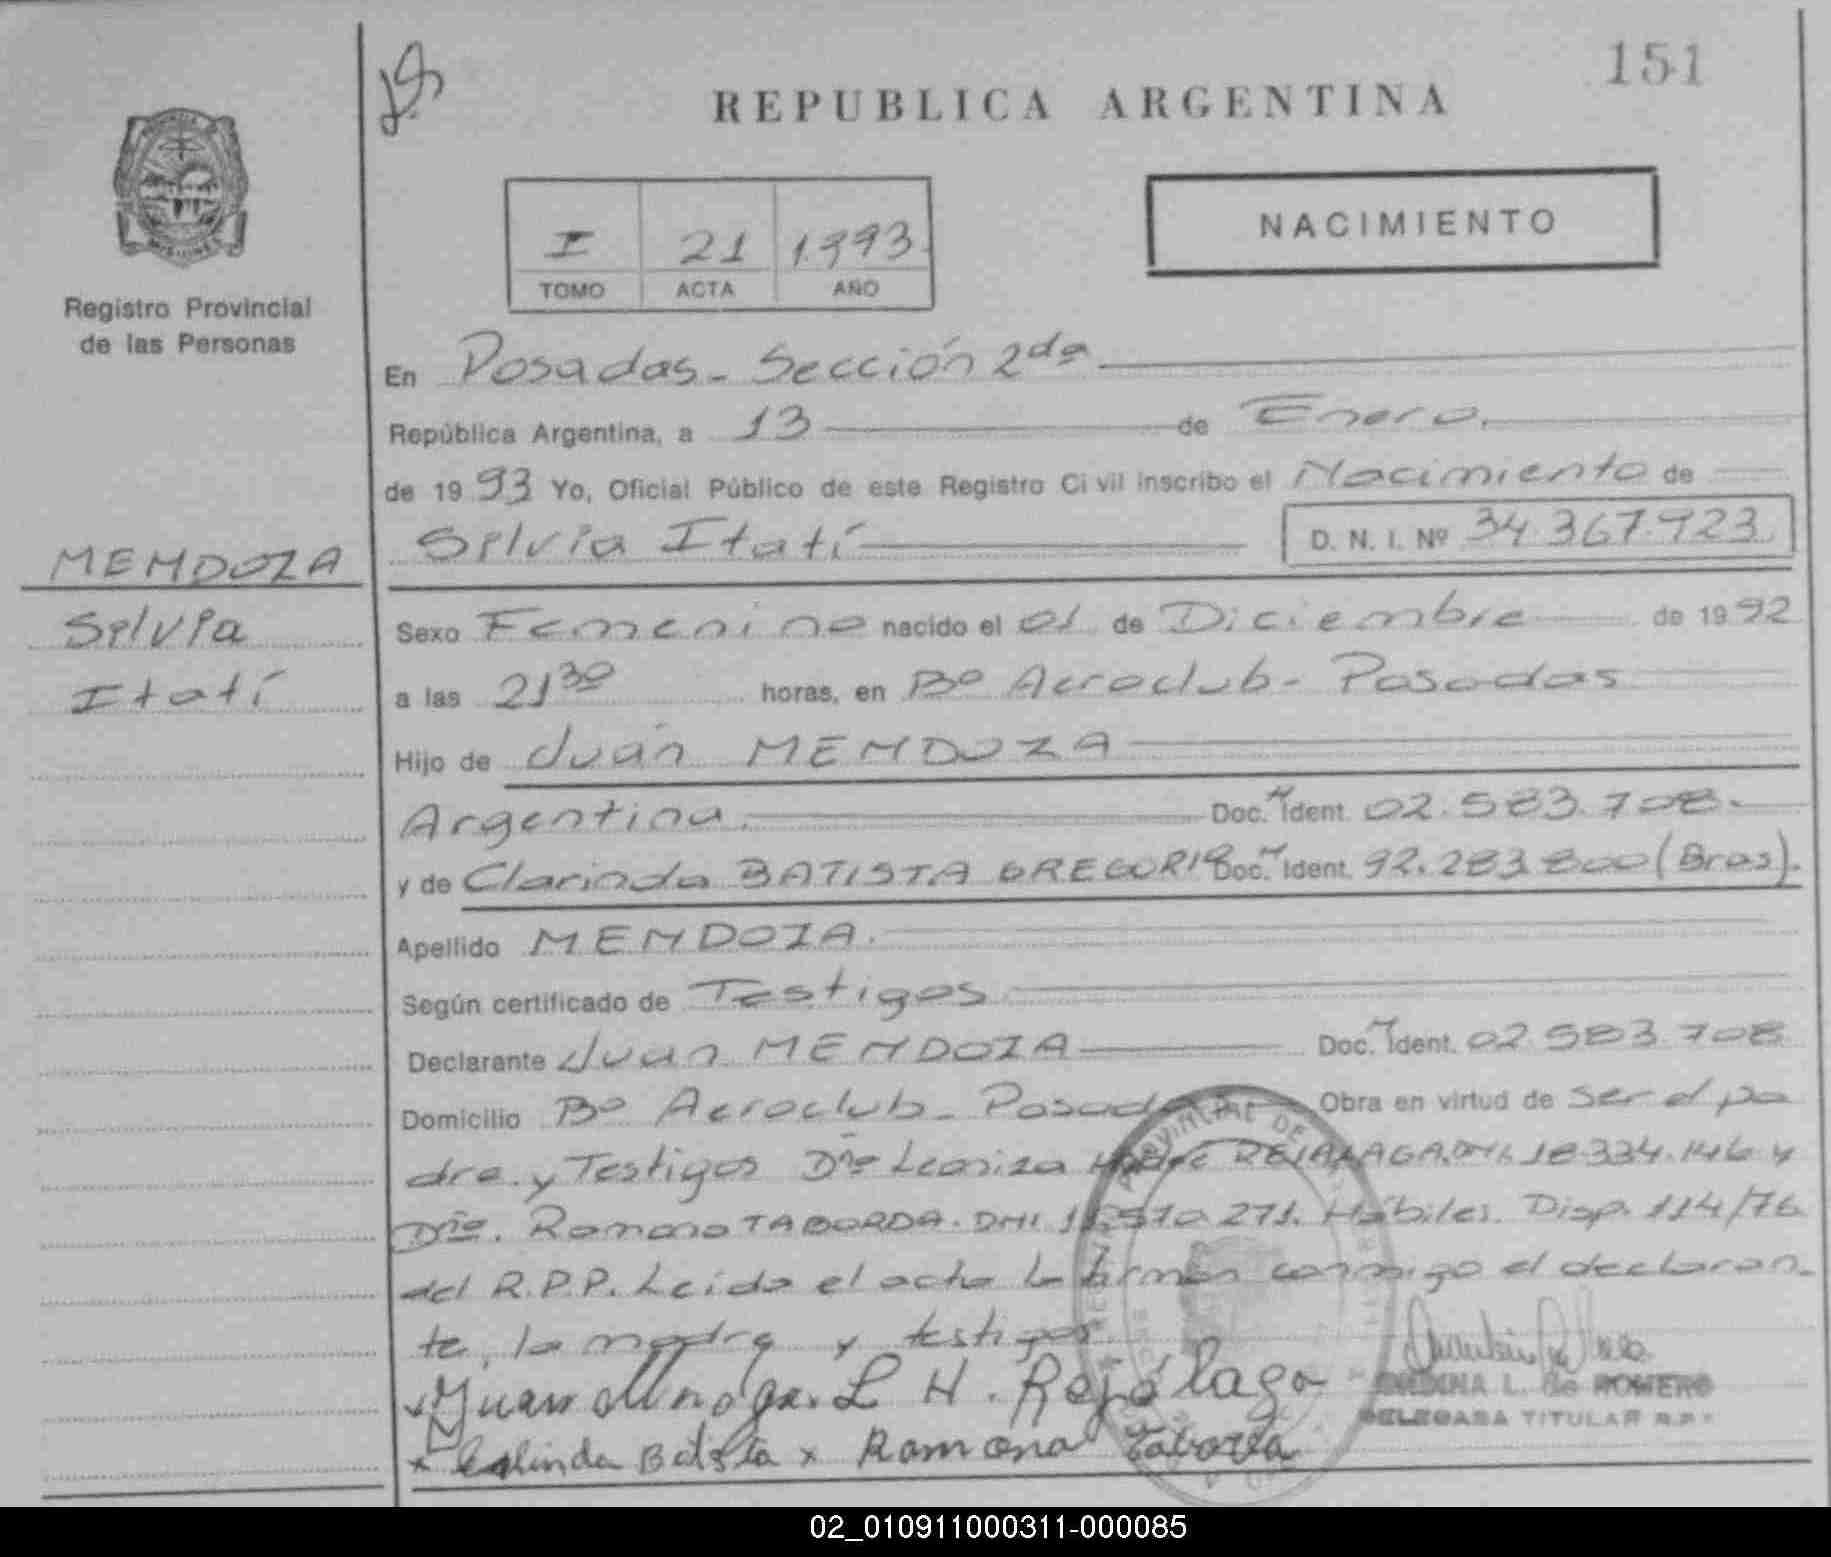 151
REPUBLICA ARGENTINA
NACIMIENTO
I 21 1.993.
TOMO ACTA AÑO
Registro Provincial
de las Personas
MENDOZA
Silvia
Itatí
En Posadas - Sección 2da
República Argentina, a 13 de Enero.
de 19 93 Yo, Oficial Público de este Registro Civil inscribo el Nacimiento de
Silvia Itatí D. N. I. Nº 34.367.923
Sexo Femenino nacido el 01 de Diciembre de 19 92
a las 21 30 horas, en Bº Aeroclub - Posadas
Hijo de Juan MENDOZA
Argentina. Doc. Ident. 02.583.708.
y de Clarinda BATISTA GREGORIO Doc. Ident. 92.283.800 (Bras).
Apellido MENDOZA.
Según certificado de Testigos
Declarante Juan MENDOZA Doc. Ident. 02.583.708
Domicilio Bº Aeroclub - Posadas Obra en virtud de ser el pa
dre. y Testigos Dña REJALAGA. 18.334.146 y
Dña. Ramona TABORDA. DNI 271. Hábiles. Disp. 114/76
del R.P.P. Leida el acta la firman conmigo el declaran-
te, la madre y testigos.
Juan L H. Rejálaga
x Batista x Ramona Taborda
L. de ROMERO
DELEGADA TITULAR R.P.P.
02_010911000311-000085